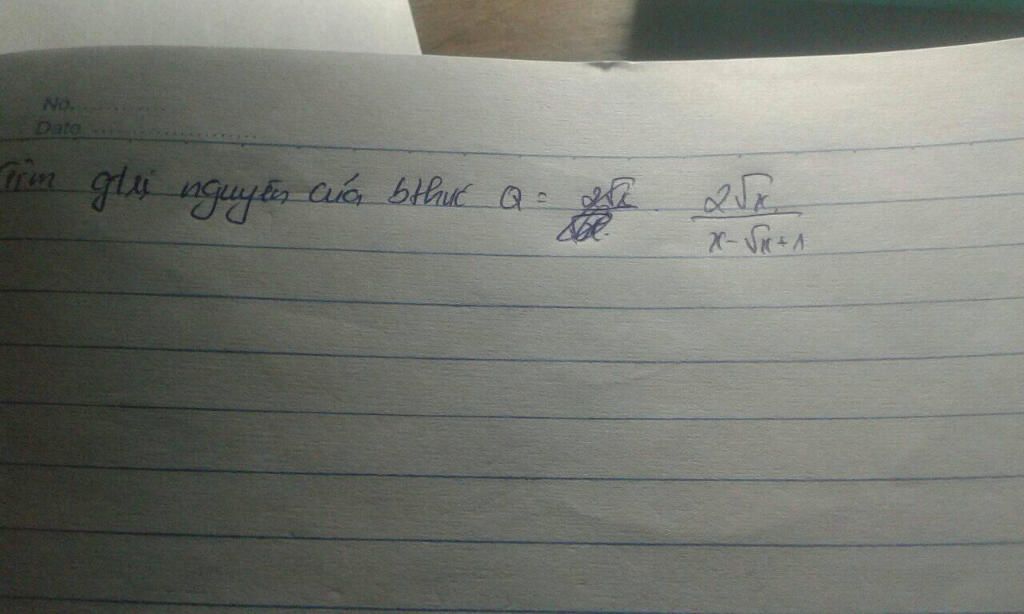 No. ............
Date ........................
Tìm gtrị nguyên của bthuc Q = 2√x / (x - √x + 1)